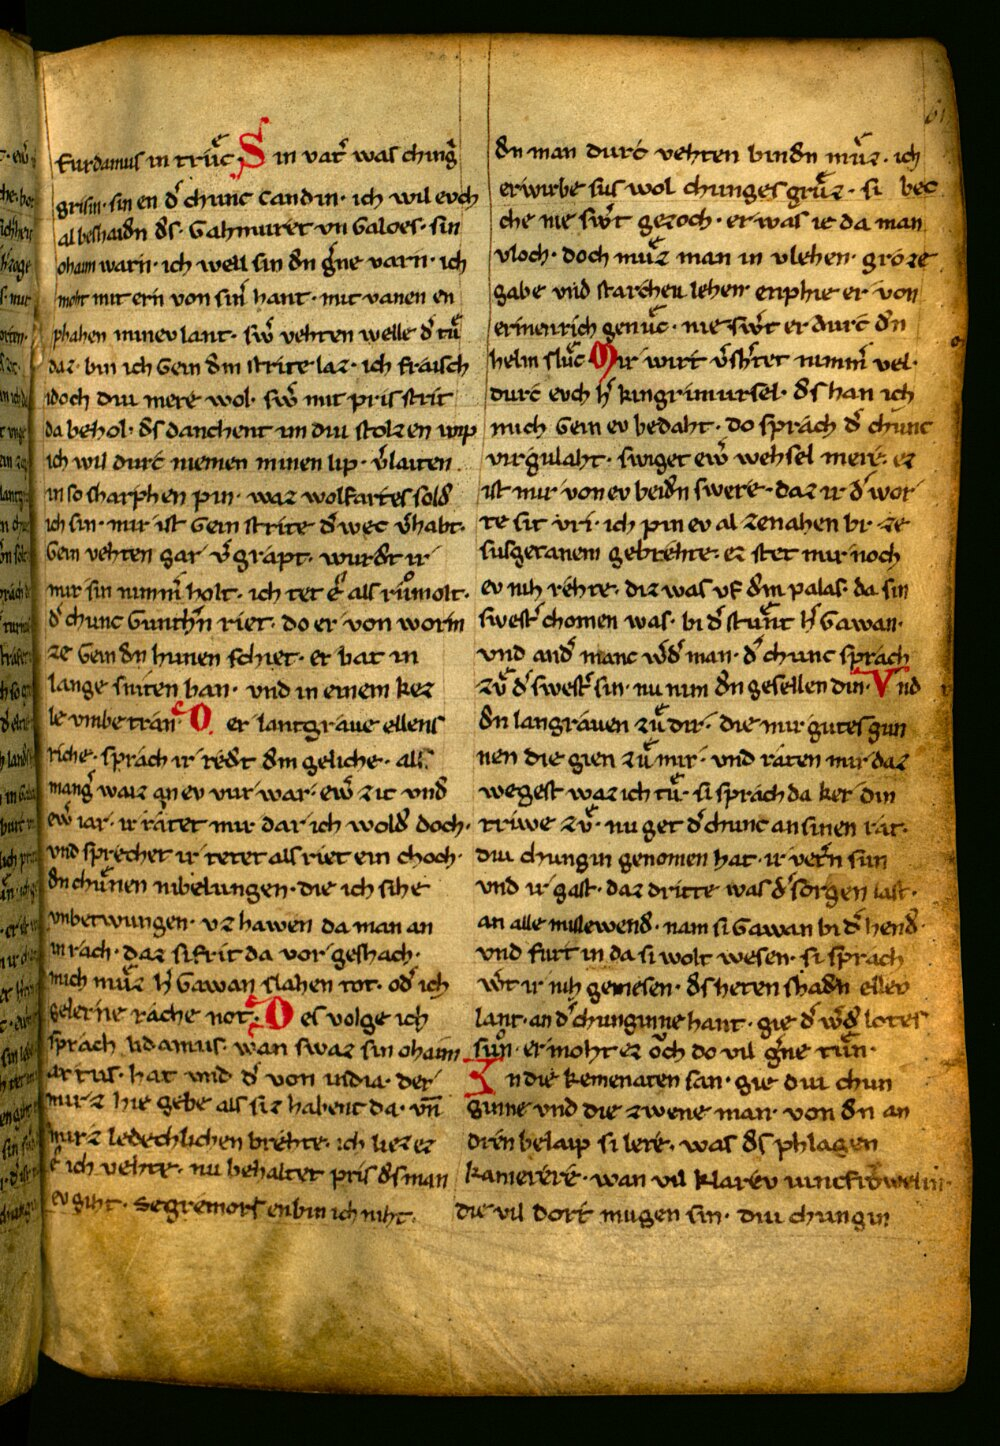 furdamus in truͤc. Sin vat͛ was ching͛
grisin. sin en d͛ chunc Candin. ich wil evch
al beshaiden ds. Gahmuret vn Galoes. sin
ohaim warn. ich well sin dn g͛ne varn. ich
moht mit ern von sin͛ hant. mit vanen en
phahen minev lant. sw͛ vehten welle d͛ tuͤ
daz. bin ich Gein dm strite laz. ich fraisch
idoch diu mere wol. sw͛ mit pris strit
da behol. ds danchent im diu stolzen wip
ich wil durc niemen minen lip. v͛laiten
in so sharphen pin. waz wolfartes sold
ich sin. mir ist Gein strite d͛ wec v͛habt.
Gein vehten gar v͛grapt. wurdt ir
mir sin nimm͛ holt. ich tet e͛ als ruͦmolt.
d͛ chunc Gunth͛n riet. do er von worm
ze Gein dn hunen schiet. er bat in
lange sniten ban. vnd in einem kez
le vmbe tran. Der lantgrave ellens
riche. sprach ir redt dm geliche. als
mang͛ waiz an ev vur war. ew͛ zit vnd
ew͛ iar. ir ratet mir dar ich wold doch.
vnd sprechet ir tetet als riet ein choch.
dn chuͤnen nibelungen. die ich sihe
vnbetwungen. vz hawen da man an
in rach. daz sifrit da vor geshach.
mich muͤz h͛ Gawan slahen tot. od͛ ich
gelerne rache not. Des volge ich
sprach lidamus. wan swaz sin ohaim
artus. hat vnd d͛ von india. der
mirz hie gebe als siz habent da. vn̄
mirz ledechlichen brehte. ich liez ez
e͛ ich vehte. nu behaltet pris ds man
ev giht. Segremors enbin ich niht.
dn man durc vehten bindn muͤz. ich
erwirbe sus wol chunges gruͤz. si bec
che nie sw͛t gezoch. er was ie da man
vloch. doch muͤz man in vlehen. groze
gabe vnd starchev lehen. enphie er von
ermenrich genuͤc. nie sw͛t er durc dn
helm sluͤc. Mir wirt v͛sh͛tet nimm͛ vel.
durc evch h͛ kingrimursel. ds han ich
mich Gein ev bedaht. do sprach d͛ chunc
virgulaht. swiget ew͛ wehsel mere. ez
ist mir von ev beidn swere. daz ir d͛ wor
te sit vri. ich pin ev al zenahen bi. ze
susgetanem gebrehte. ez stet mir noch
ev nih rehte. diz was vf dm palas. da sin
swest͛ chomen was. bi d͛ stuͤnt h͛ Gawan.
vnd and͛ manc w͛d͛ man. d͛ chunc sprach
zuͤ d͛ swest͛ sin. nu nim dn gesellen din. Vnd
dn langraven zuͤ dir. die mir gutes gun
nen die gien zuͤ mir. vnd raten mir daz
wegest waz ich tuͤ. si sprach da ker din
triwe zuͤ. nu get d͛ chunc an sinen rat.
diu chungin genomen hat. ir vet͛n sun
vnd ir gast. daz dritte was d͛ sorgen last.
an alle missewend. nam si Gawan bi d͛ hend.
vnd furt in da si wolt wesen. si sprach
w͛t ir nih genesen. ds heten shadn ellev
lant. an d͛ chunginne hant. gie d͛ w͛d͛ lotes
suͦn. er moht ez oͮch do vil g͛ne tuͦn.
In die kemenaten san. gie diu chun
ginne vnd die zwene man. von dn an
dren belaip si lere. was ds phlagen
kamerere. wan vil klarev iuncfroͮwelin.
die vil dort mugen sin. diu chungin